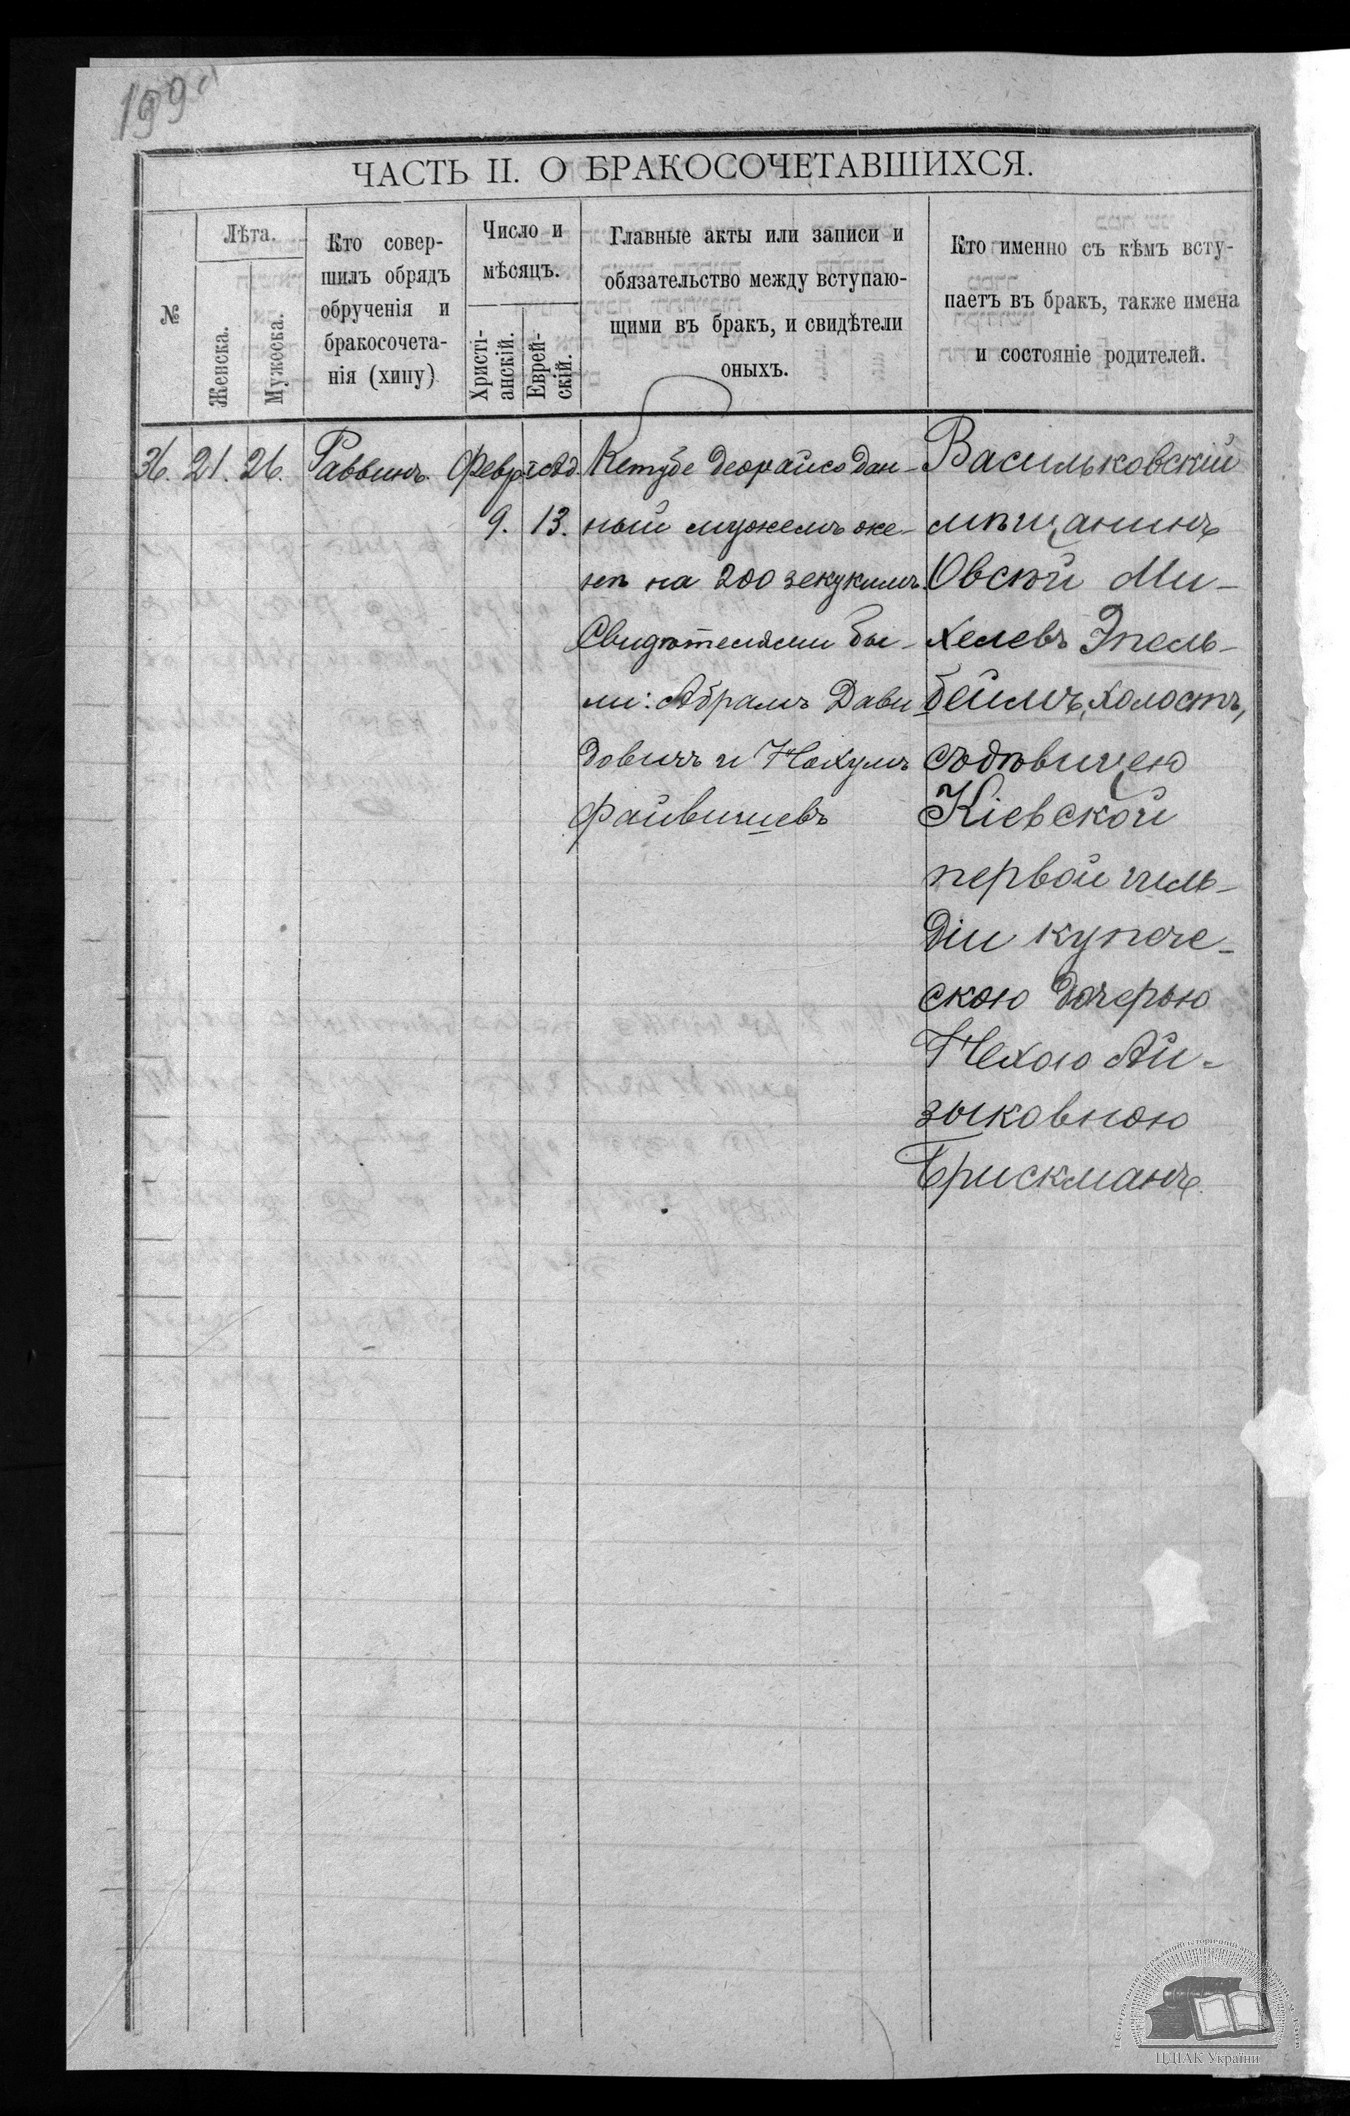 199
ЧАСТЬ II. О БРАКОСОЧЕТАВШИХСЯ.
№
Лѣта.
Женска.
Мужеска.
Кто совер-
шилъ обрядъ
обрученія и
бракосочета-
нія (хипу)
Число и
мѣсяцъ.
Христі-
анскій.
Еврей-
скій.
Главные акты или записи и
обязательство между вступаю-
щими въ бракъ, и свидѣтели
оныхъ.
Кто именно съ кѣмъ всту-
паетъ въ бракъ, также имена
и состояніе родителей.
36. 21. 26. Раввинъ. Февр. Ад.
9. 13.
Кетубе деорайсо дан-
ный мужемъ же-
нѣ на 200 зекукимъ.
Свидѣтелями бы-
ли: Абрамъ Дави
довичъ и Нохумъ
Файвишевъ
Васильковскій
мѣщанинъ
Овсѣй Ми-
хелевъ Эпель-
беймъ, холостъ,
съ дѣвицею
Кіевской
первой гиль-
діи купече-
скою дочерью
Нехою Ай-
зыковною
Брискманъ.
ЦДІАК України